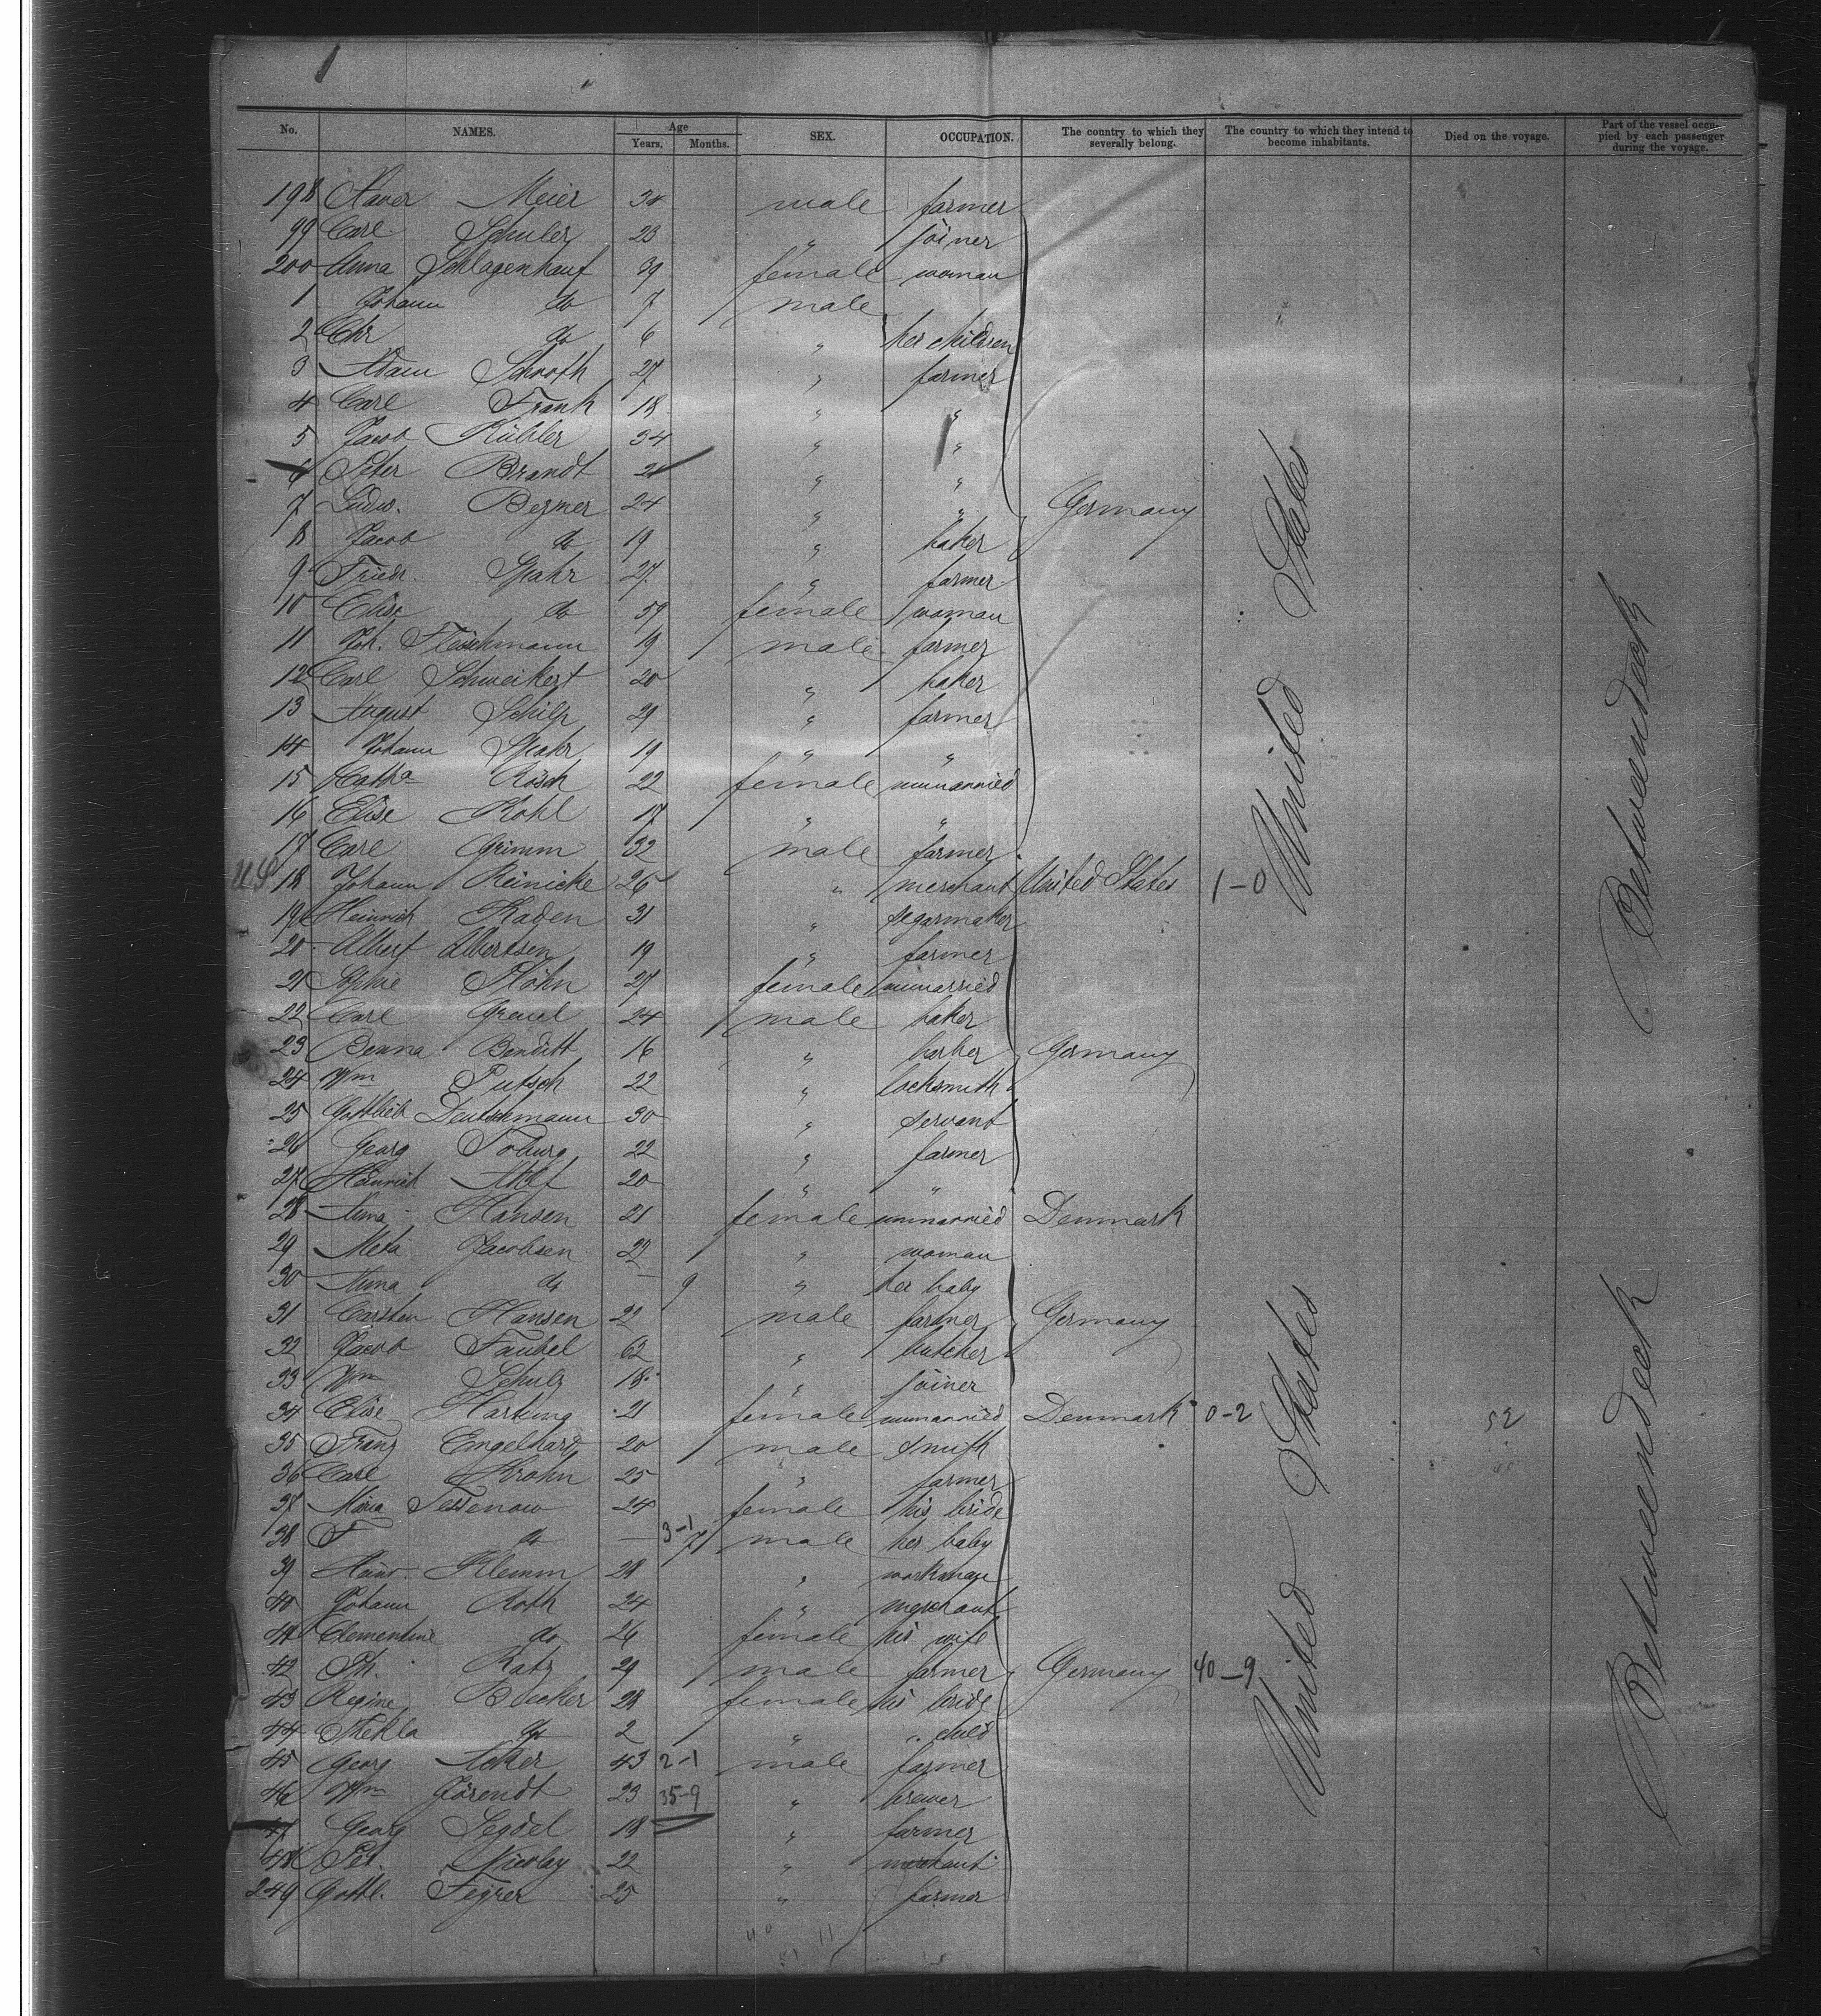 No. NAMES. Age Years. Months. SEX. OCCUPATION. The country to which they severally belong. The country to which they intend to become inhabitants. Died on the voyage. Part of the vessel occupied by each passenger during the voyage.
198 Xaver Meier 34 male farmer
99 Carl Schuler 23 " joiner
200 Anna Schlagenhauf 39 female woman
1 Johann do 7 male
2 Chr do 6 " her children
3 Adam Schroth 27 " farmer
4 Carl Frank 18 " "
5 Jacob Kübler 34 " "
6 Peter Brandt 21 " "
7 Ludw. Bezner 24 " " Germany
8 Jacob do 19 " baker
9 Friedr. Spahr 27 " farmer
10 Elise do 59 female woman
11 Joh. Fleischmann 19 male farmer
12 Carl Schweikert 20 " baker
13 August Schilp 29 " farmer
14 Johann Spahr 19 " "
15 Catha Rösch 22 female unmarried
16 Elise Kohl 17 " "
17 Carl Grimm 32 male farmer
US 18 Johann Reinicke 26 " merchant United States 1-0
United States
Betweendeck
19 Heinrich Kaden 31 " segarmaker
20 Albert Albertsen 19 " farmer
21 Sophie Höhn 27 female unmarried
22 Carl Greuel 24 male baker
23 Benna Benditt 16 " barber Germany
24 Wm Putsch 22 " locksmith
25 Gottlieb Deutschmann 30 " servant
26 Georg Toburg 22 " farmer
27 Heinrich Ahlf 20 " "
28 Anna Hansen 21 female unmarried Denmark
29 Meta Jacobsen 22 " woman
30 Anna do — 9 " her baby
31 Carsten Hansen 22 male farmer Germany
32 Jacob Faubel 62 " butcher
33 Wm Schulz 18 " joiner
34 Elise Hartung 21 female unmarried Denmark 0-2 52
35 Franz Engelhardt 20 male smith
36 Carl Krohn 25 " farmer
37 Maria Tessenow 24 female his bride
38 F do — 3-1 7 male her baby
39 Heinr. Klemm 28 " workman
40 Johann Roth 24 " merchant
41 Clementine do 26 female his wife
42 Ph. Katz 29 male farmer Germany 40-9
43 Regine Blecker 28 female his bride
44 Thekla do 2 " " child
45 Georg Acker 43 2-1 male farmer
46 Wm Jörendt 23 35-9 " brewer
47 Georg Segdel 18 " farmer
48 Pet. Nicolay 22 " merchant
249 Gottl. Feyrer 25 " farmer
United States
Betweendeck
40 11